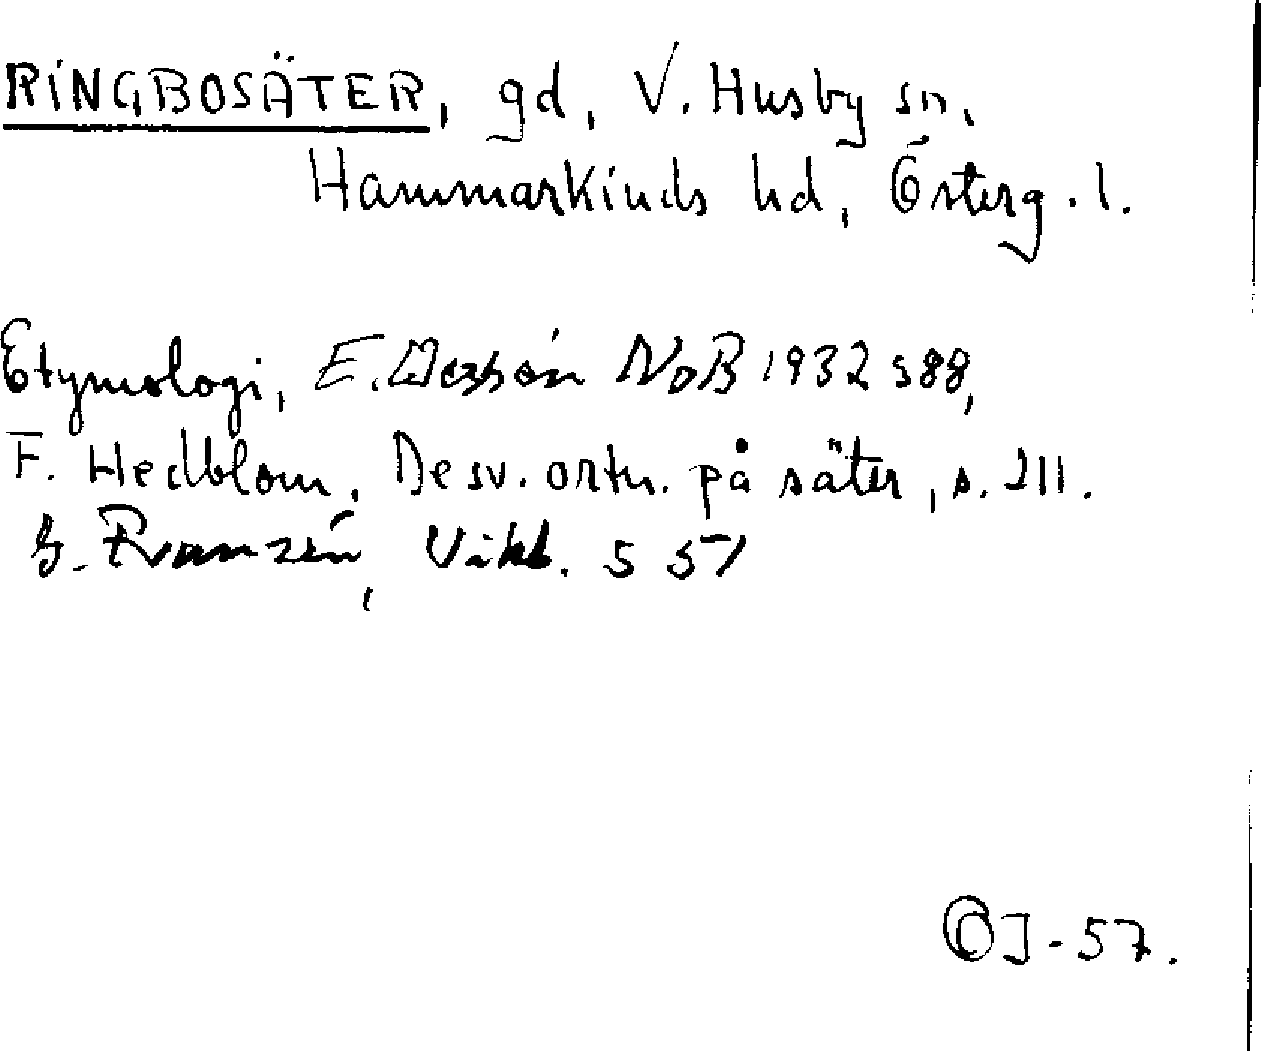 RINGBOSÄTER, gd, V. Husby sn,
Hammarkinds hd, Österg. l.
Etymologi, E. Wessén NoB 1932 s 88,
F. Hedblom, De sv. ortn. på säter, s. 211.
G. Franzén, Vikb. s 57
OJ-57.